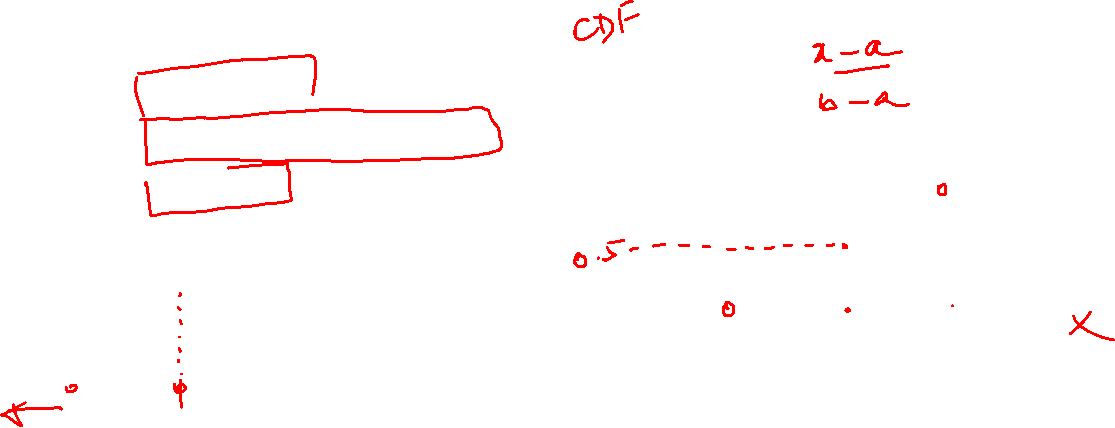 CDF
x - a
b - a
0.5
x